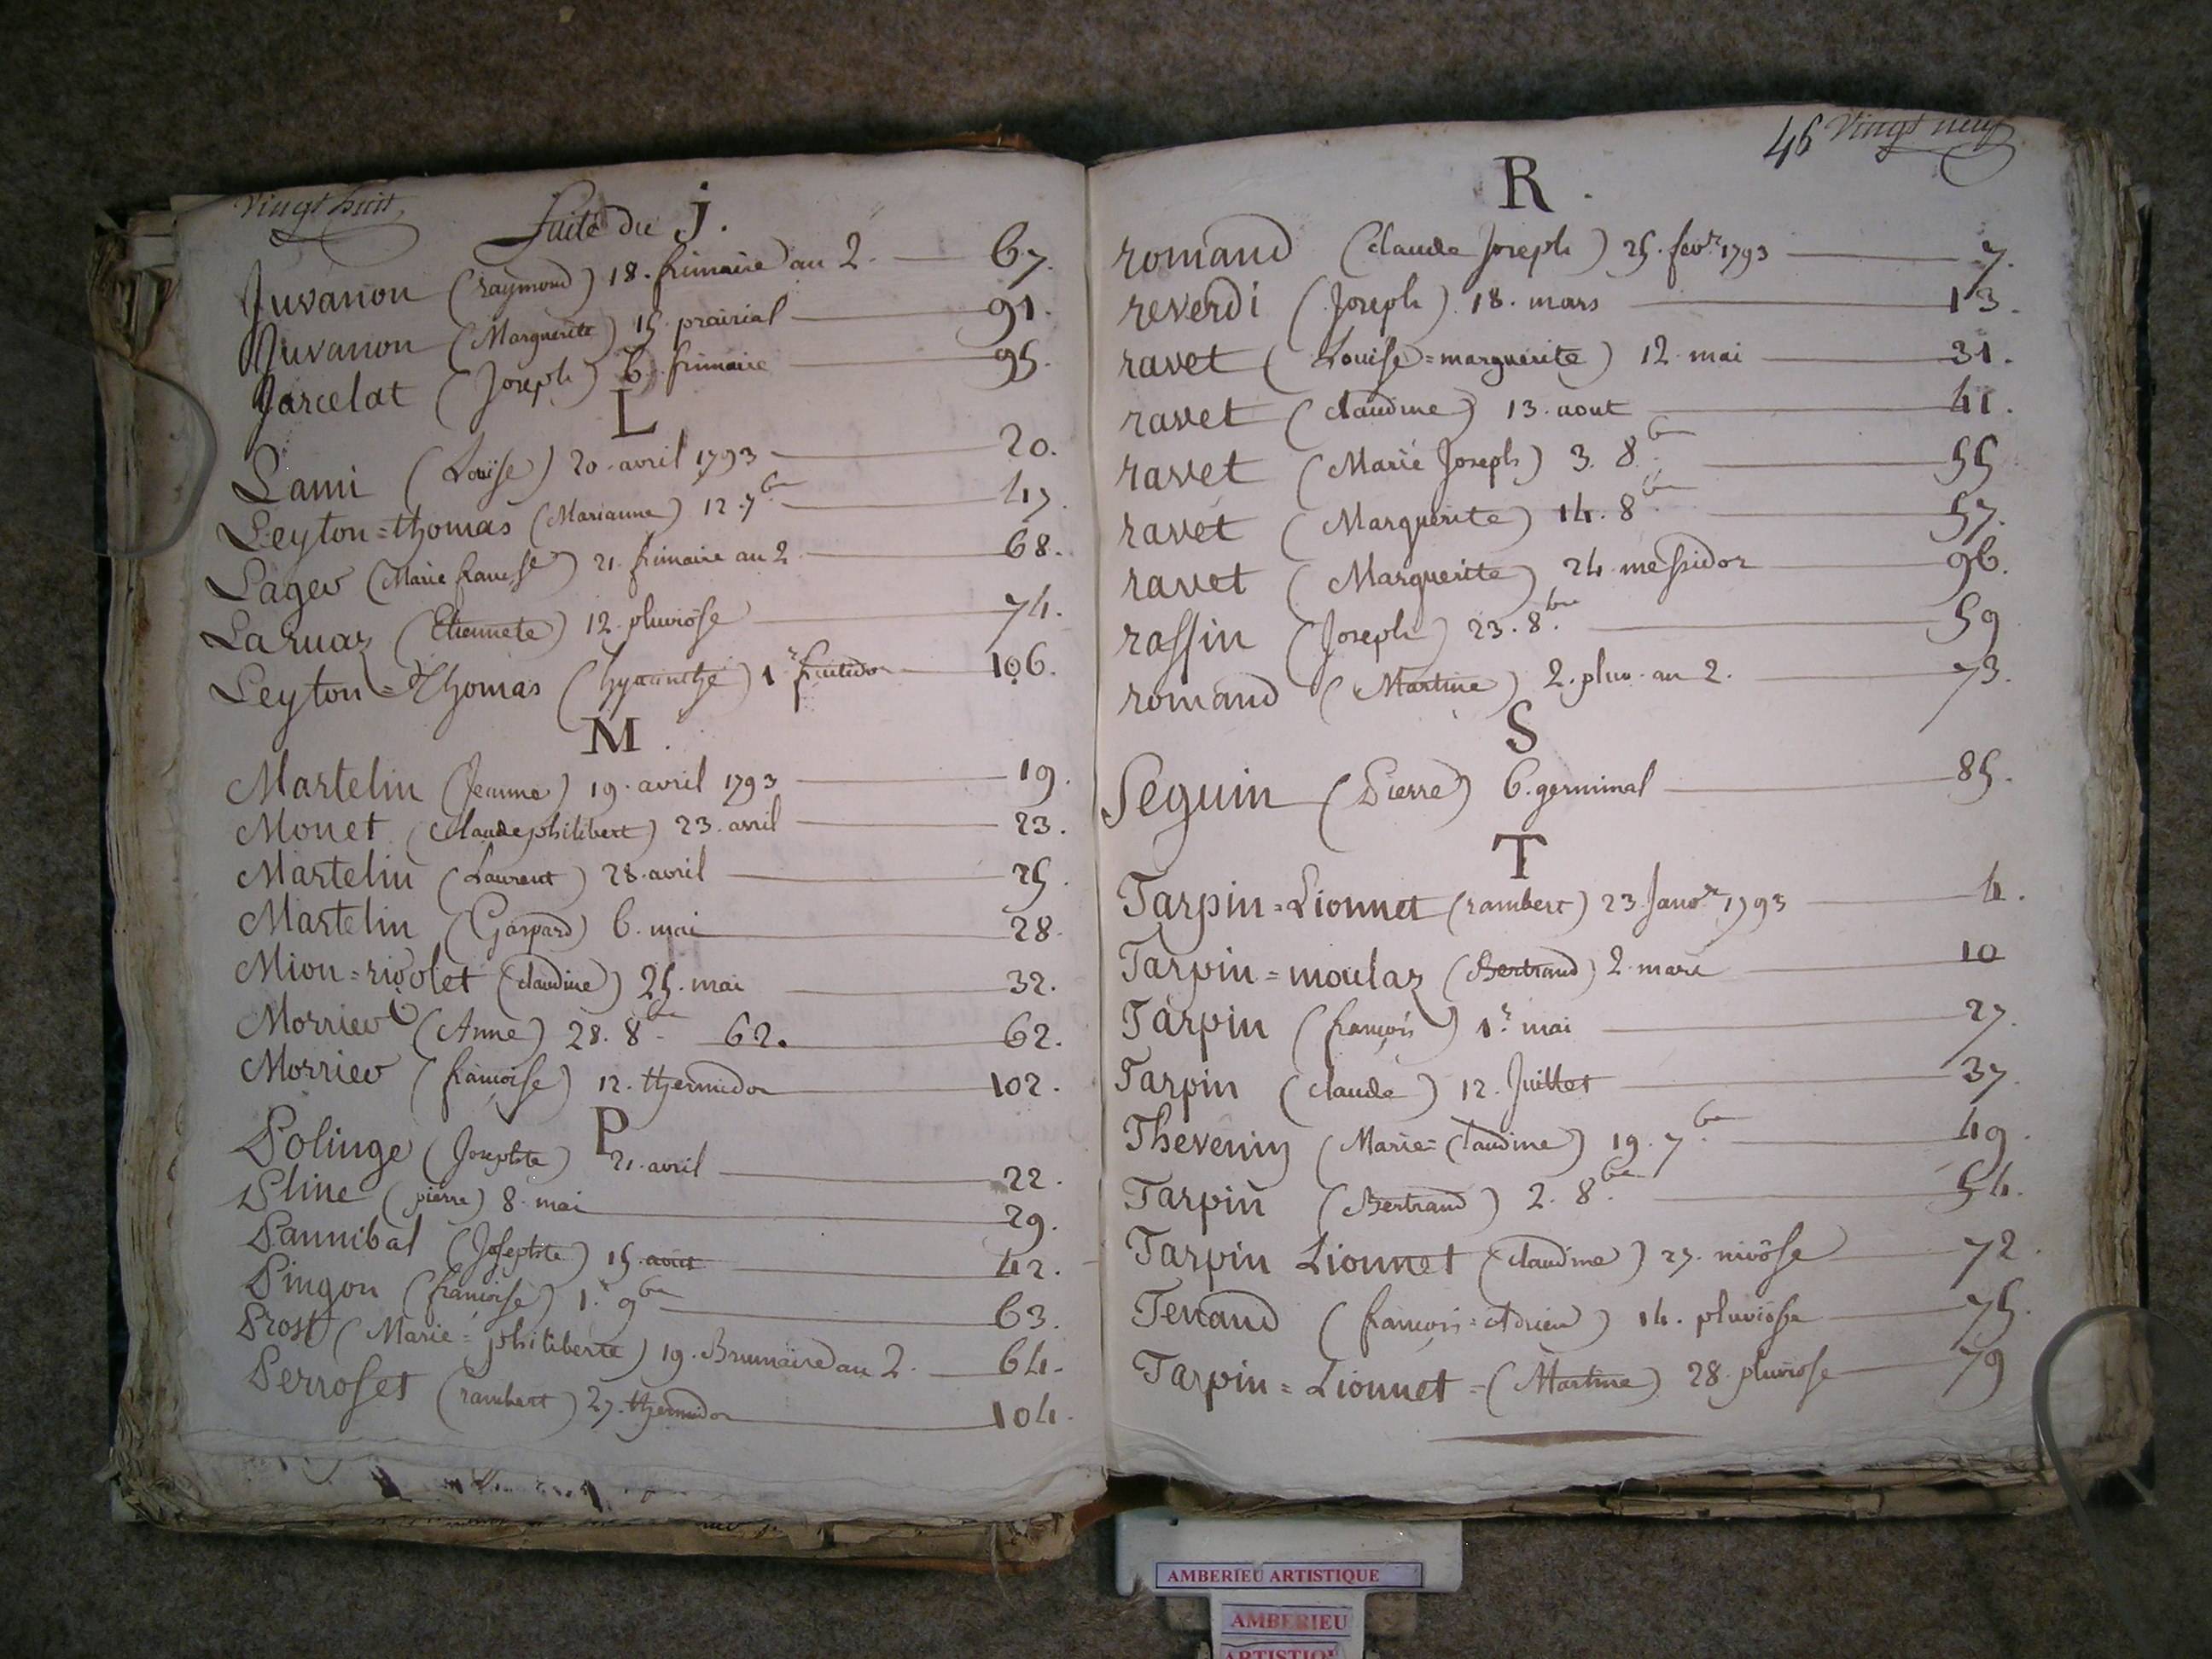 Vingt huit
Suite du j.
Juvanon (raymond) 18. frimaire an 2. 67.
Juvanon (Marguerite) 15. prairial 91.
Jarcelat (Joseph) 6. frimaire 95.
L
Lami (Louise) 20. avril 1793 20.
Leyton=thomas (Marianne) 12. 7bre 47.
Lager (Marie franc.se) 21. frimaire an 2 68.
Laruaz (Etiennete) 12. pluviôse 74.
Leyton=Thomas (hyacinthe) 1.r fructidor 106.
M.
Martelin (Jeanne) 19. avril 1793 19.
Monet (Claude philibert) 23. avril 23.
Martelin (Laurent) 28. avril 25.
Martelin (Gaspard) 6. mai 28.
Mion=rivolet (claudine) 25. mai 32.
Morrier (Anne) 28. 8bre 62. 62.
Morrier (francoise) 12. thermidor 102.
P
Polinge (Josephte) 21. avril 22.
Pline (pierre) 8. mai 29.
Pannibal (Josephte) 15. aout 42.
Pingon (francoise) 1.r 9bre 63.
Prost (Marie=philiberte) 19. Brumaire an 2. 64.
Perroset (rambert) 27. thermidor 104.
46 Vingt neuf
R.
romand (Claude Joseph) 25. fevr. 1793 7.
reverdi (Joseph) 18. mars 13.
ravet (Louise=marguerite) 12. mai 31.
ravet (claudine) 13. aout 41.
ravet (Marie Joseph) 3. 8bre 55
ravet (Marguerite) 14. 8bre 57.
ravet (Marguerite) 24. messidor 96.
rassin (Joseph) 23. 8bre 59
romand (Martine) 2. pluv. an 2. 73.
S
Seguin (Pierre) 6. germinal 85.
T
Tarpin=Lionnet (rambert) 23. Janvr. 1793 4.
Tarpin=moulaz (Bertrand) 2. mars 10
Tarpin (francois) 1.r mai 27.
Tarpin (claude) 12. Juillet 37.
Thevenin (Marie=Claudine) 19. 7bre 49.
Tarpin (Bertrand) 2. 8bre 54.
Tarpin Lionnet (claudine) 27. nivôse 72.
Tenand (francois=Adrien) 14. pluviôse 75.
Tarpin=Lionnet=(Martine) 28. pluviose 79
AMBERIEU ARTISTIQUE
AMBERIEU
ARTISTIQU